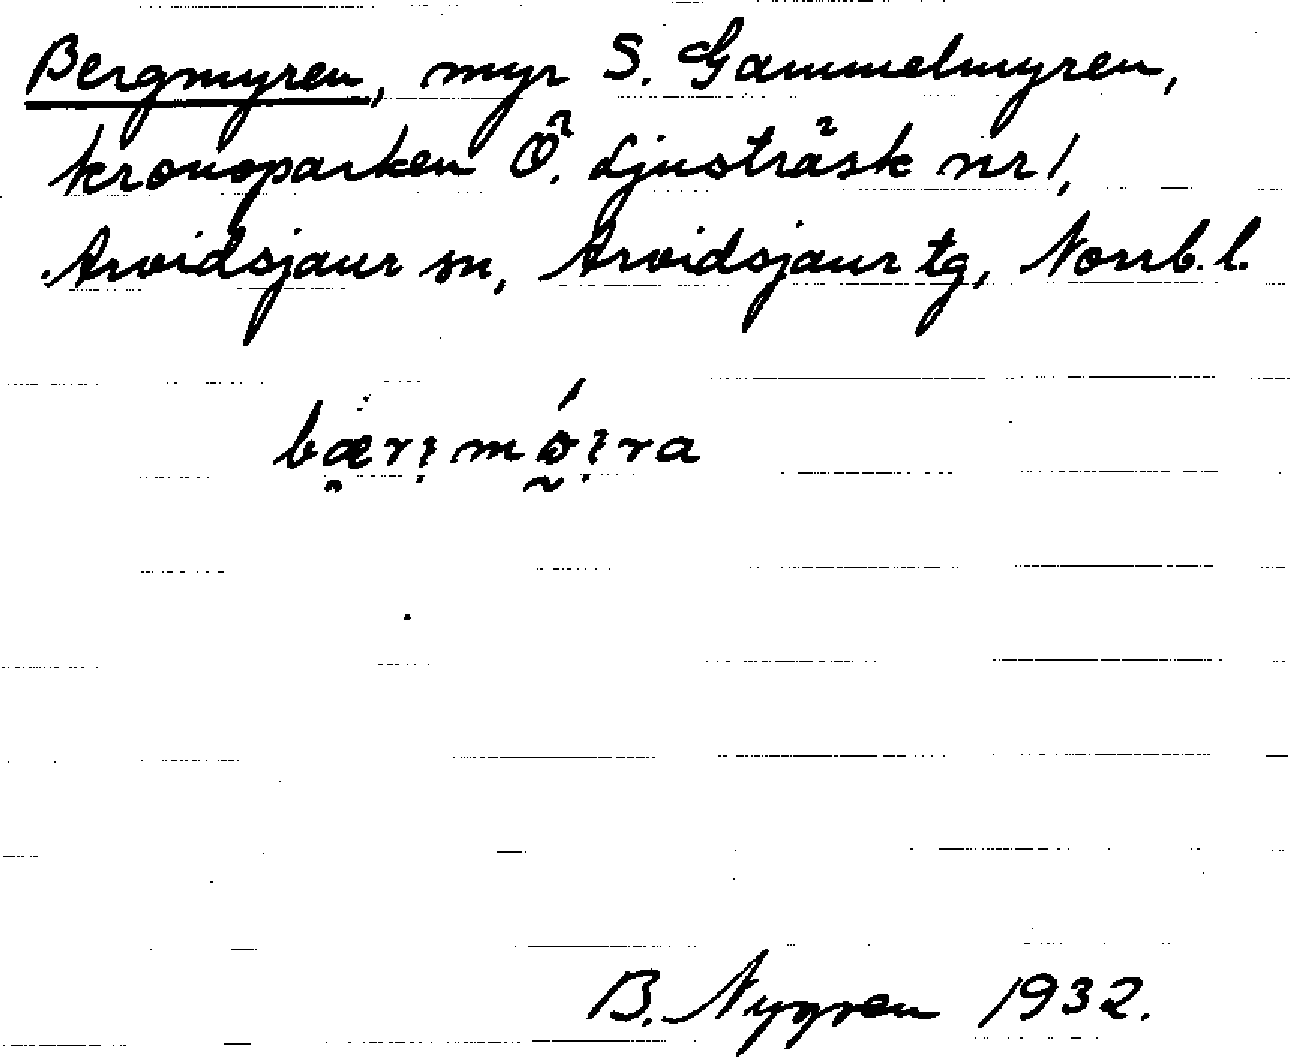 Bergmyren, myr S. Gammelmyren,
kronoparken Ö. Ljusträsk nr 1,
Arvidsjaur sn, Arvidsjaur tg, Norrb. l.
B. Nygren 1932.